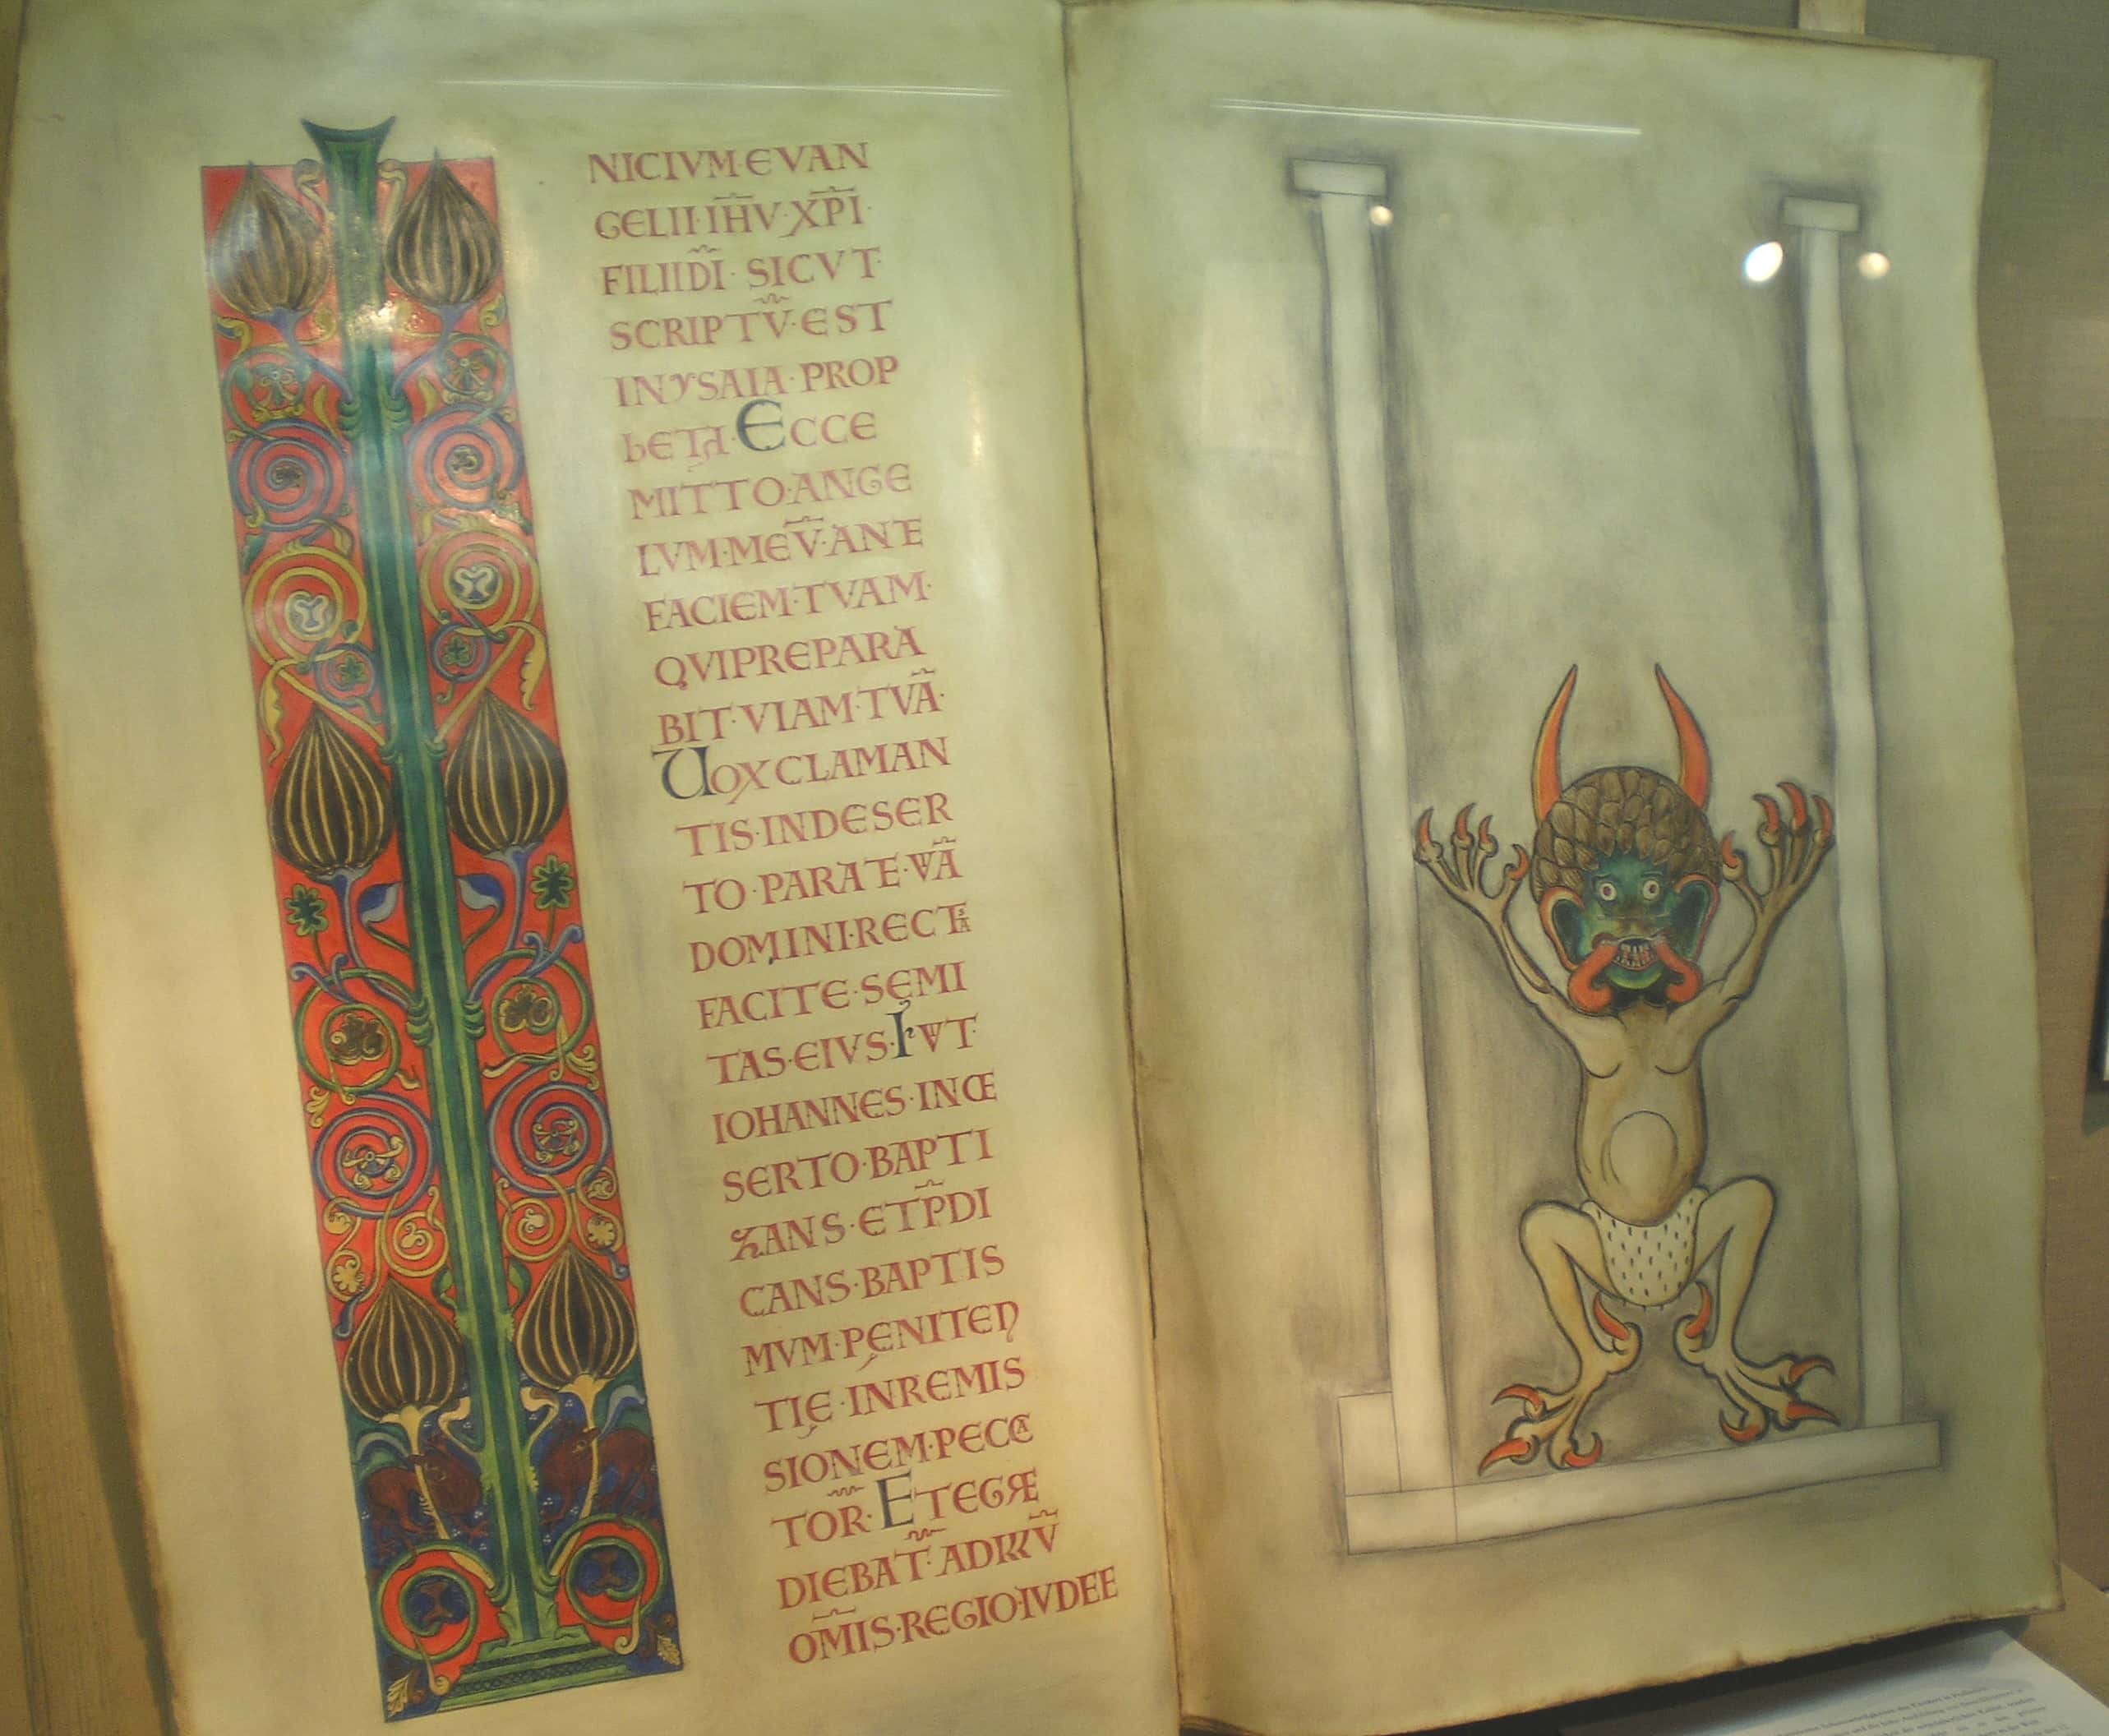 NICIVM·EVAN
GELII·IHV·XPI·
FILII DI·SICVT·
SCRIPTV·EST
IN YSAIA·PROP
hETA·ECCE
MITTO·ANGE
LVM·MEV·ANE
FACIEM·TVAM·
QVI PREPARA
BIT·VIAM·TVA·
UOX CLAMAN
TIS·IN DESER
TO·PARATE·VIA
DOMINI·RECTAS
FACITE·SEMI
TAS·EIVS·FVIT·
IOHANNES·IN DE
SERTO·BAPTI
ZANS·ET PDI
CANS·BAPTIS
MVM·PENITEN
TIE·IN REMIS
SIONEM·PECCA
TOR·ET EGRE
DIEBAT·AD ILLV
OMIS·REGIO·IVDEE